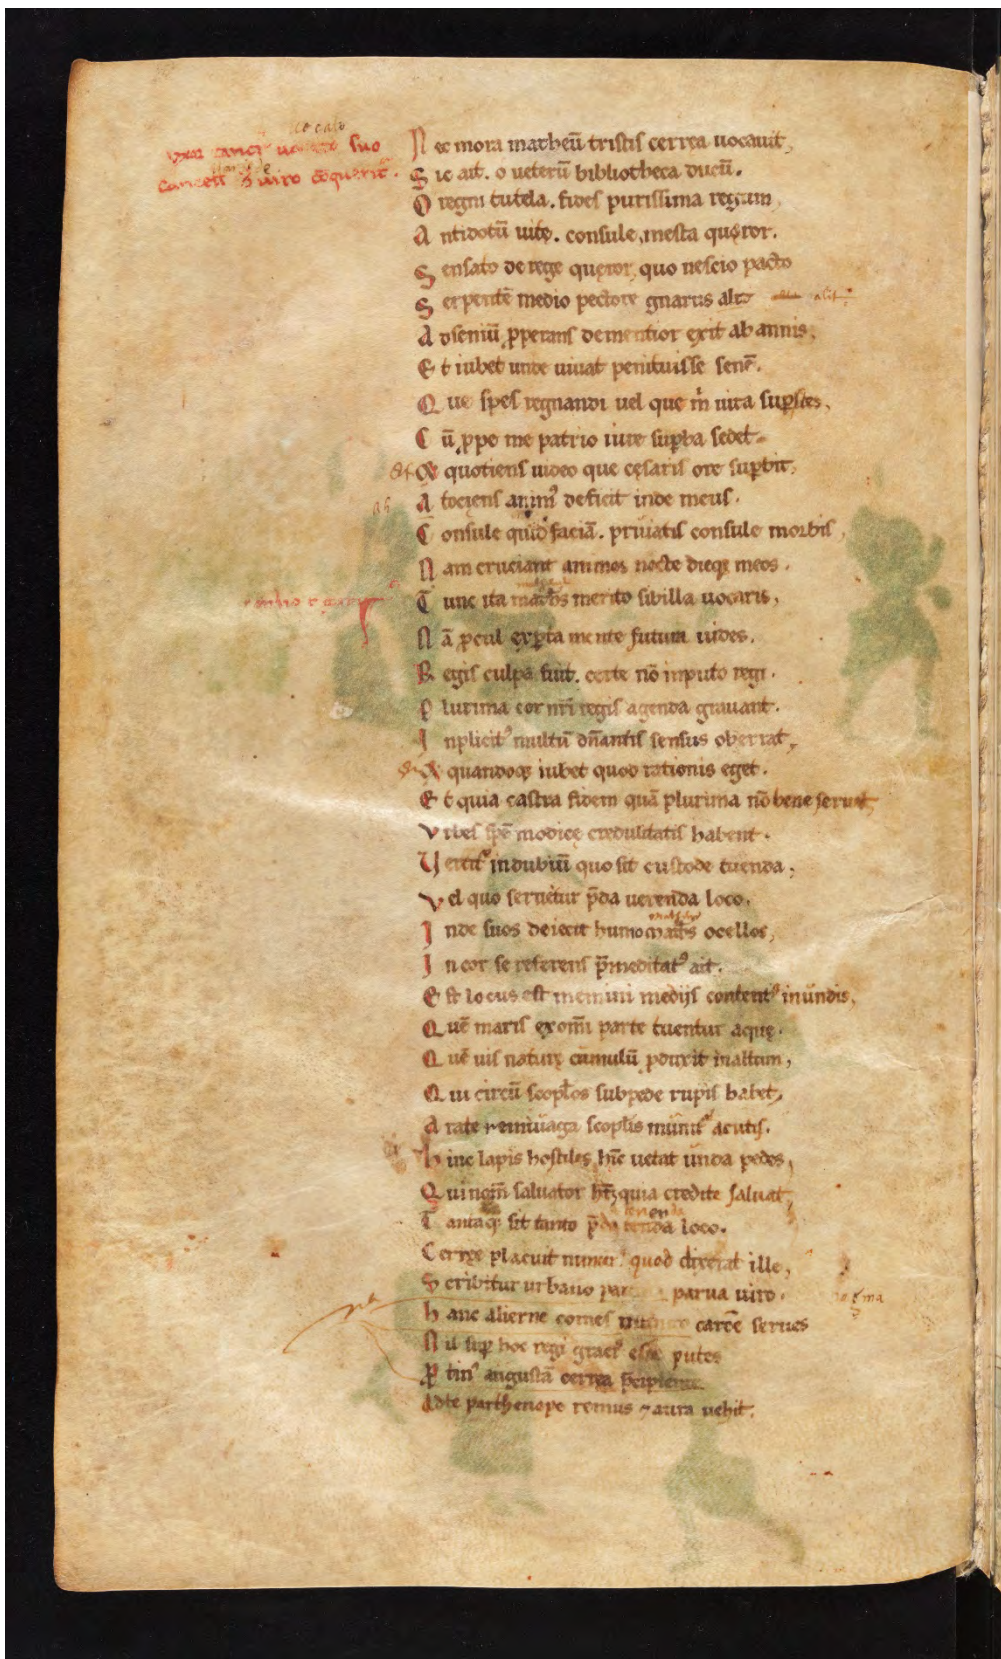 uxor tancr suo
cancell viro coquerit.
Nec mora matheū tristis cerrea uocauit,
Sic ait. o ueterū bibliotheca ducū.
O regni tutela. fides purissima regum,
Antidotū uite. consule, mesta quęror.
Sensato de rege quęror, quo nescio pacto
Serpentē medio pectore gnarus alit
Ad seniū ꝓperans dementior exit ab annis,
Et iubet unde uiuat penituisse senē.
Que spes regnandi uel que m̄ uita suꝑstes,
Cū ꝓpe me patrio iure suꝑba sedet.
Quotiens uideo que cęsaris ore suꝑbit,
A tociens animꝰ deficit inde meus.
Consule quid faciā. priuatis consule morbis,
Nam cruciant animos nocte dieqꝫ meos.
Tunc ita merito sibilla uocaris,
Nā ꝓcul exꝑta mente futura uides.
Regis culpa fuit. certe nō inputo regi.
Plurima cor nr̄i regis agenda grauant.
Inplicitꝰ multū dn̄antis sensus oberrat,
quandoqꝫ iubet quod rationis eget.
Et quia castra fidem quā plurima nō bene seruāt,
Vrbes spē modicę credulitatis habent.
Vertitꝰ in dubiū quo sit custode tuenda,
Vel quo seruetur p̄da uerenda loco.
Inde suos deiecit humo ocellos,
In cor se referens p̄meditatꝰ ait.
Est locus est memini medijs contentꝰ in undis,
Quē maris ex om̄i parte tuentur aquę.
Quē uis naturę cumulū porrexit in altum,
Qui circū scopl̄os sub pede rupis habet,
Arate remiuaga scopl̄is munitꝰ acutis.
Hinc lapis hostiles, hīc uetat unda pedes,
Qui nom̄ saluator hꝫ, quia credite saluat,
Tantaqꝫ sit tanto p̄da loco.
Cerree placuit quod dixerat ille,
Scribitur urbano parua uiro.
Hanc alierne comes carcē serues
Nil suꝑ hoc regi esse putes
Ptinꝰ angustā cerrea p̄cipiente
Adte parthenope remus ⁊ aura uehit.